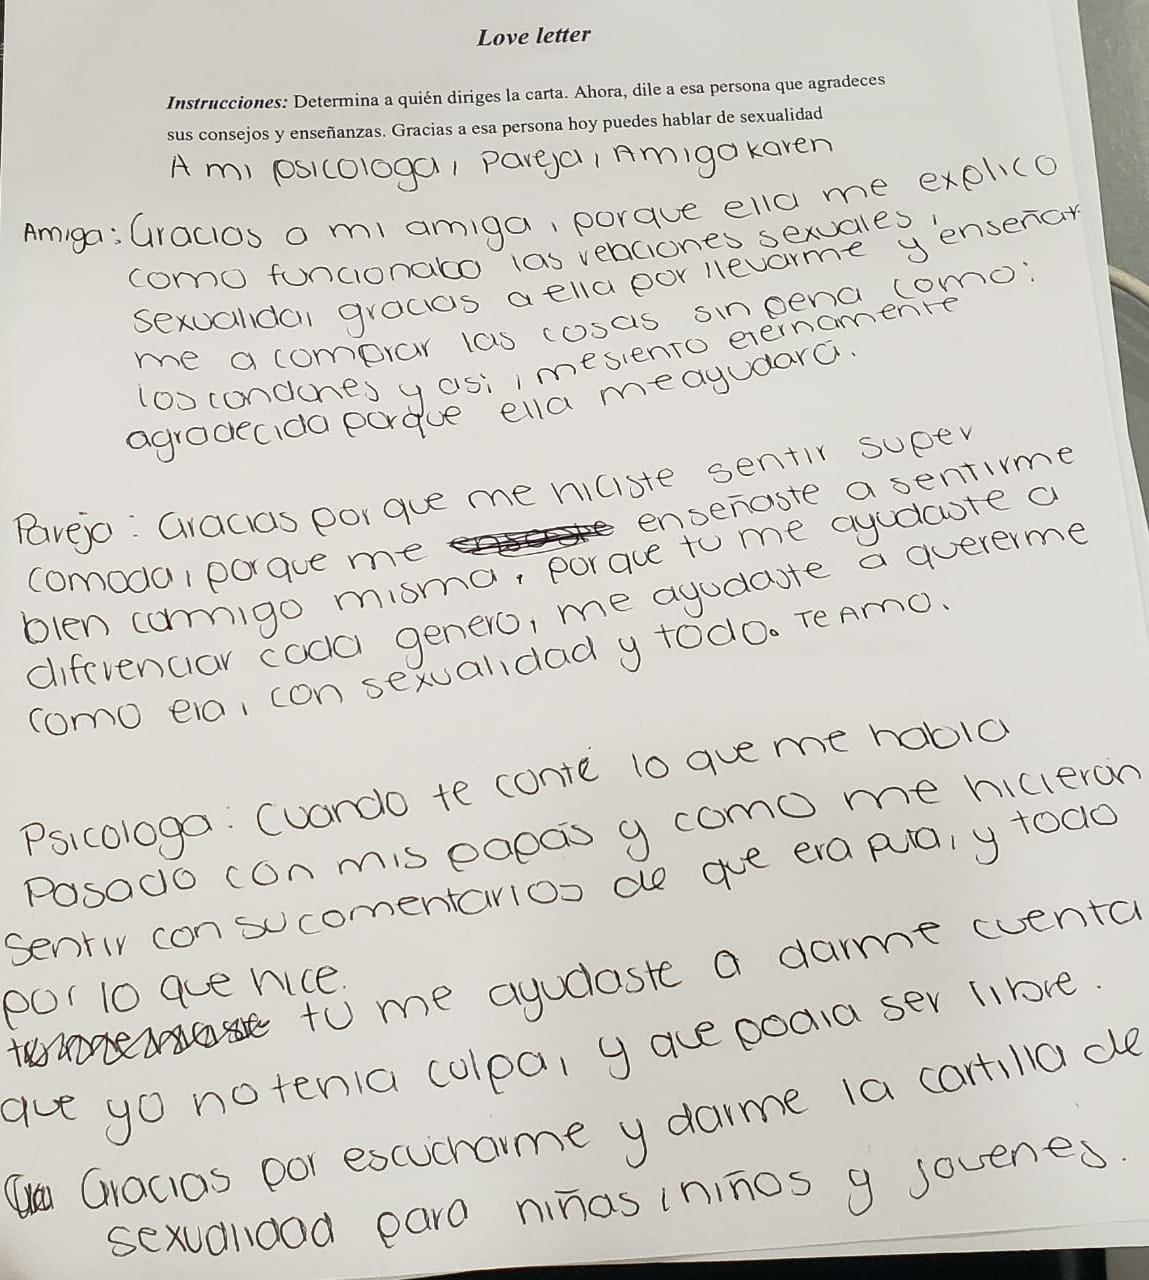 Love letter
Instrucciones: Determina a quién diriges la carta. Ahora, dile a esa persona que agradeces
sus consejos y enseñanzas. Gracias a esa persona hoy puedes hablar de sexualidad
A mi psicologa, Pareja, Amiga Karen
Amiga: Gracias a mi amiga, porque ella me explico
como funcionaba las relaciones sexuales,
sexualidad gracias a ella por llevarme y enseñar
me a comprar las cosas sin pena como:
los condones y asi, me siento eternamente
agradecida porque ella me ayudara.
Pareja: Gracias por que me hiciste sentir super
comoda, por que me enseñaste a sentirme
bien conmigo misma, por que tu me ayudaste a
diferenciar cada genero, me ayudaste a quererme
como era, con sexualidad y todo. Te Amo.
Psicologa: Cuando te conté lo que me habia
Pasado con mis papás y como me hicieron
sentir con su comentarios de que era puta, y todo
por lo que hice.
tu me ayudaste a darme cuenta
que yo no tenia culpa, y que podia ser libre.
Gracias por escucharme y darme la cartilla de
sexualidad para niñas, niños y jovenes.